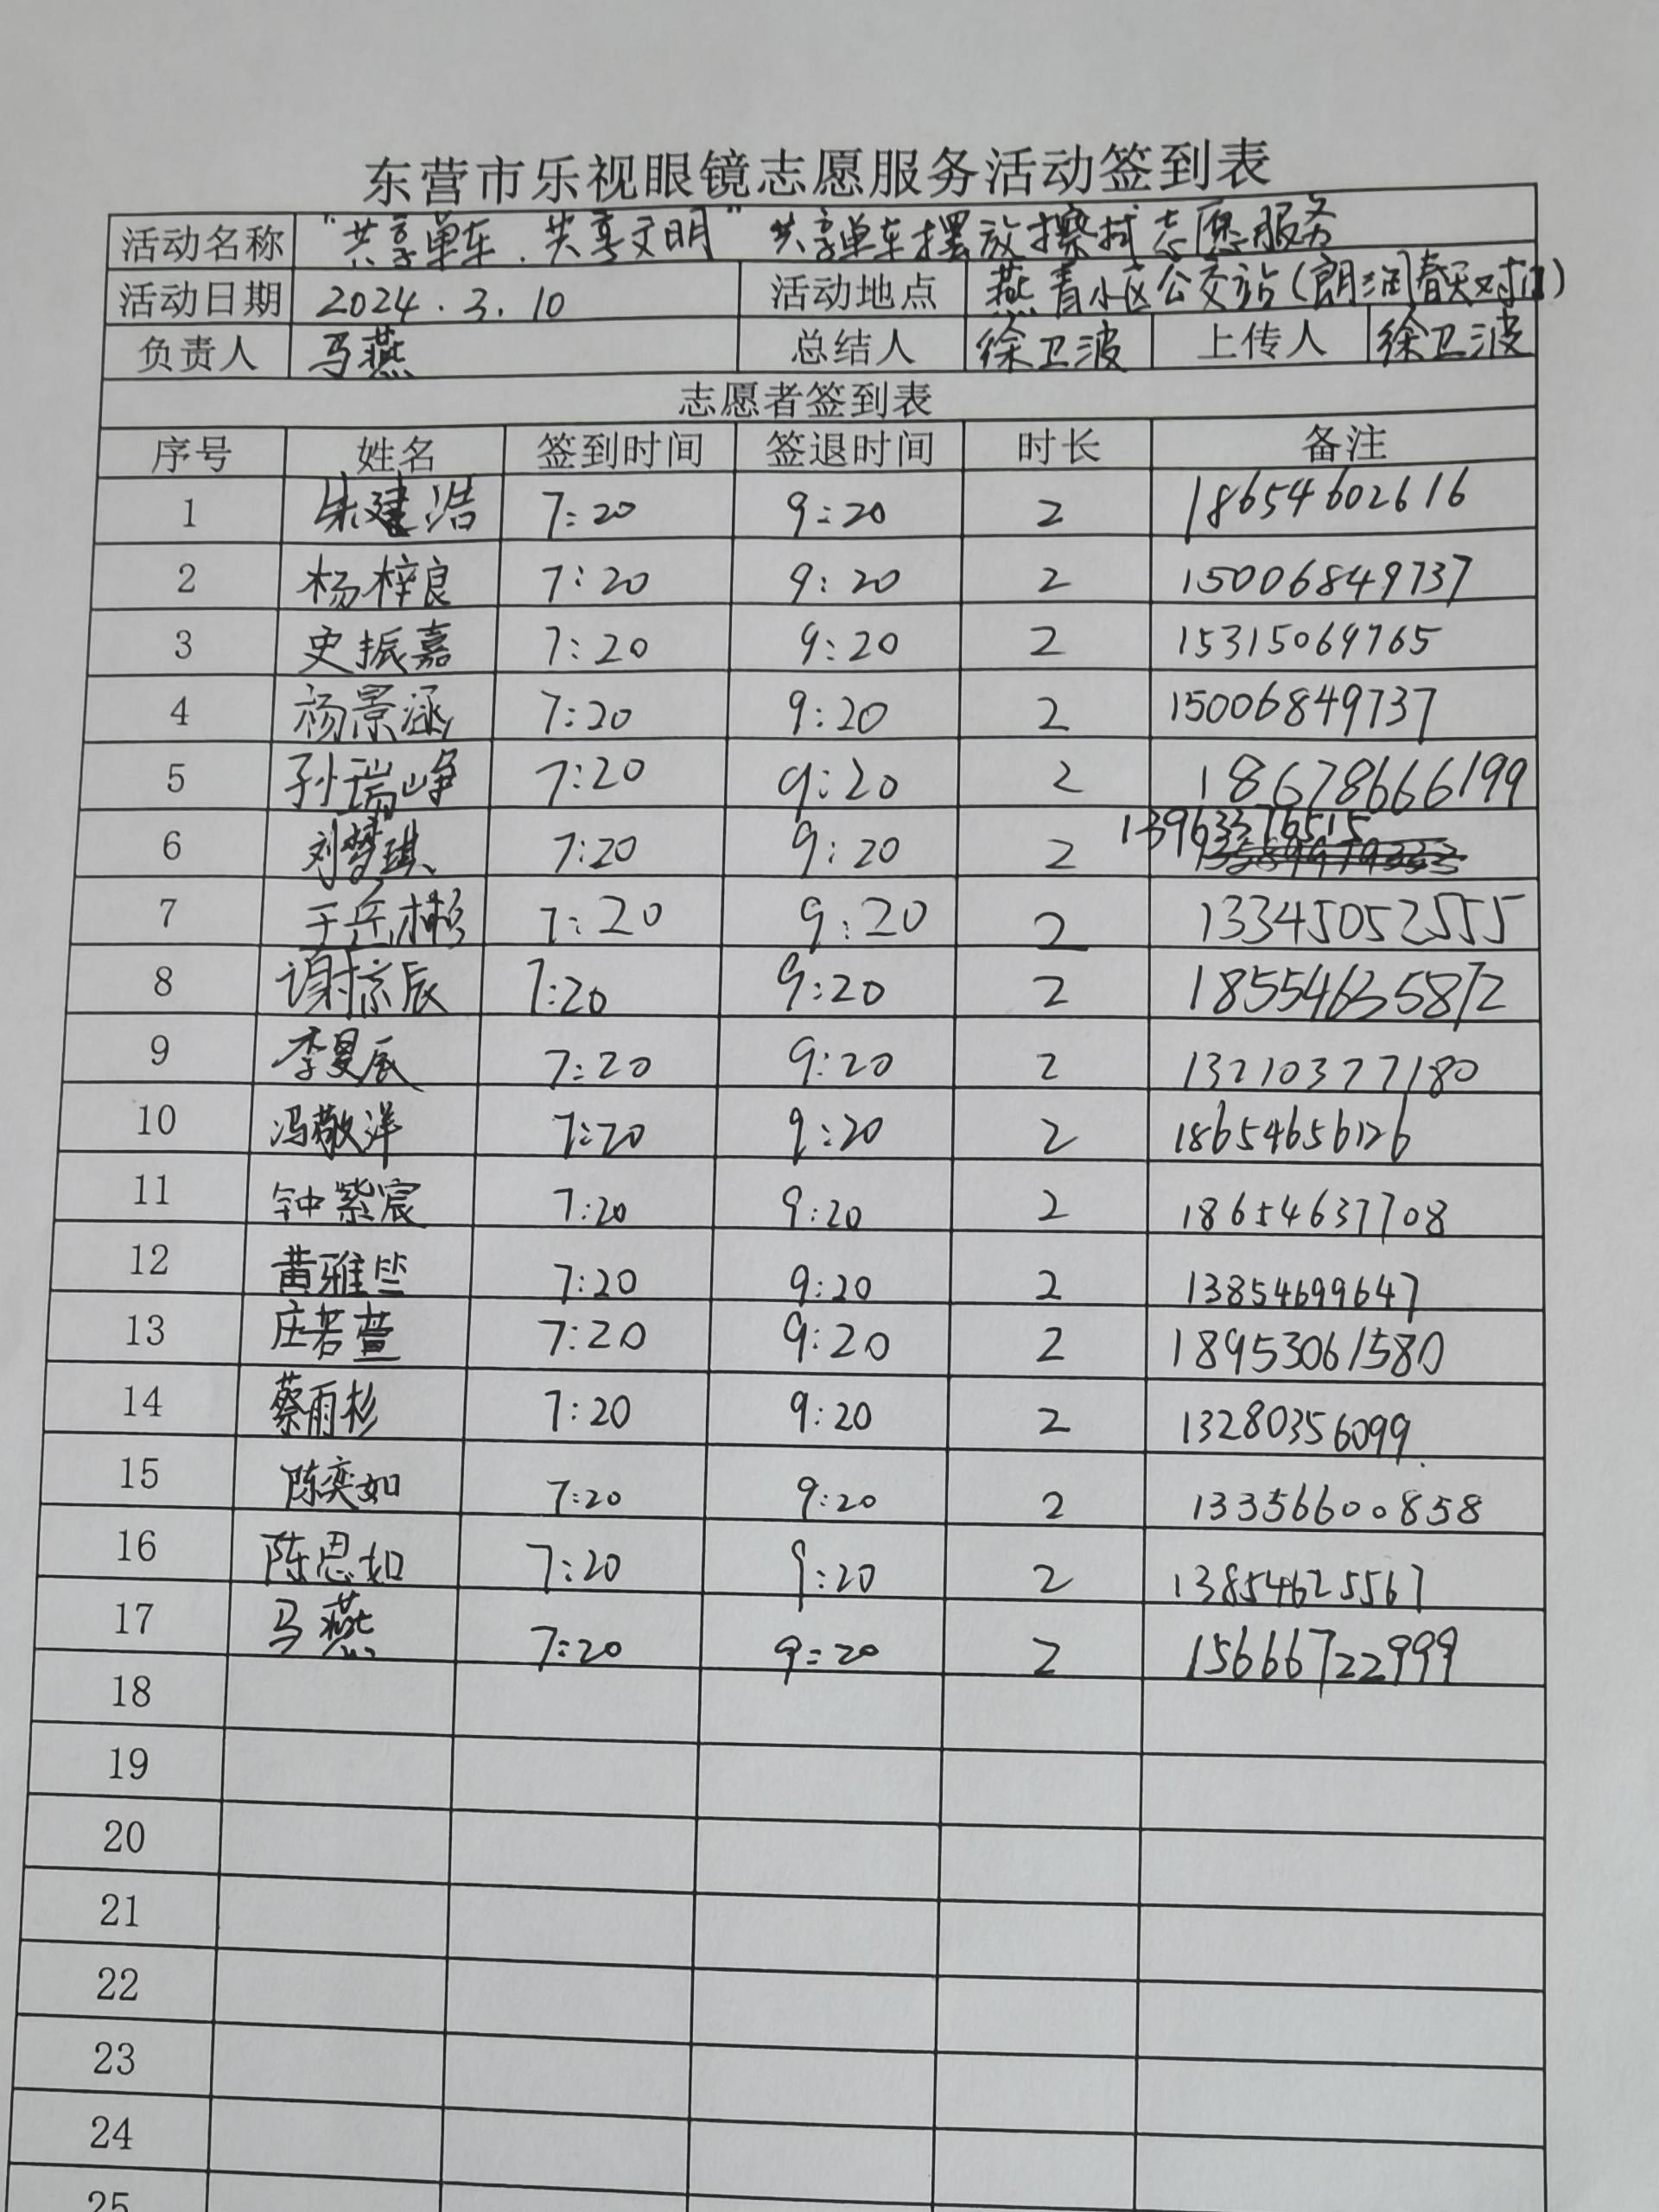 东营市乐视眼镜志愿服务活动签到表
活动名称 "共享单车.共享文明" 共享单车摆放擦拭志愿服务
活动日期 2024.3.10 活动地点 燕青小区公交站(朗润春天对门)
负责人 马燕 总结人 徐卫波 上传人 徐卫波
志愿者签到表
序号 姓名 签到时间 签退时间 时长 备注
1 朱建浩 7:20 9:20 2 18654602616
2 杨梓良 7:20 9:20 2 15006849737
3 史振嘉 7:20 9:20 2 15315069765
4 杨景涵 7:20 9:20 2 15006849737
5 孙瑞峥 7:20 9:20 2 18678666199
6 刘梦琪 7:20 9:20 2 13963376515
7 于岳彬 7:20 9:20 2 13345052555
8 谢京辰 7:20 9:20 2 18554635872
9 李昊辰 7:20 9:20 2 13210377180
10 冯敬洋 7:20 9:20 2 18654656126
11 钟紫宸 7:20 9:20 2 18654637708
12 黄雅竺 7:20 9:20 2 13854699647
13 庄若萱 7:20 9:20 2 18953061580
14 蔡雨杉 7:20 9:20 2 13280356099
15 陈奕如 7:20 9:20 2 13356600858
16 陈思如 7:20 9:20 2 13854625567
17 马燕 7:20 9:20 2 15666722999
18
19
20
21
22
23
24
25